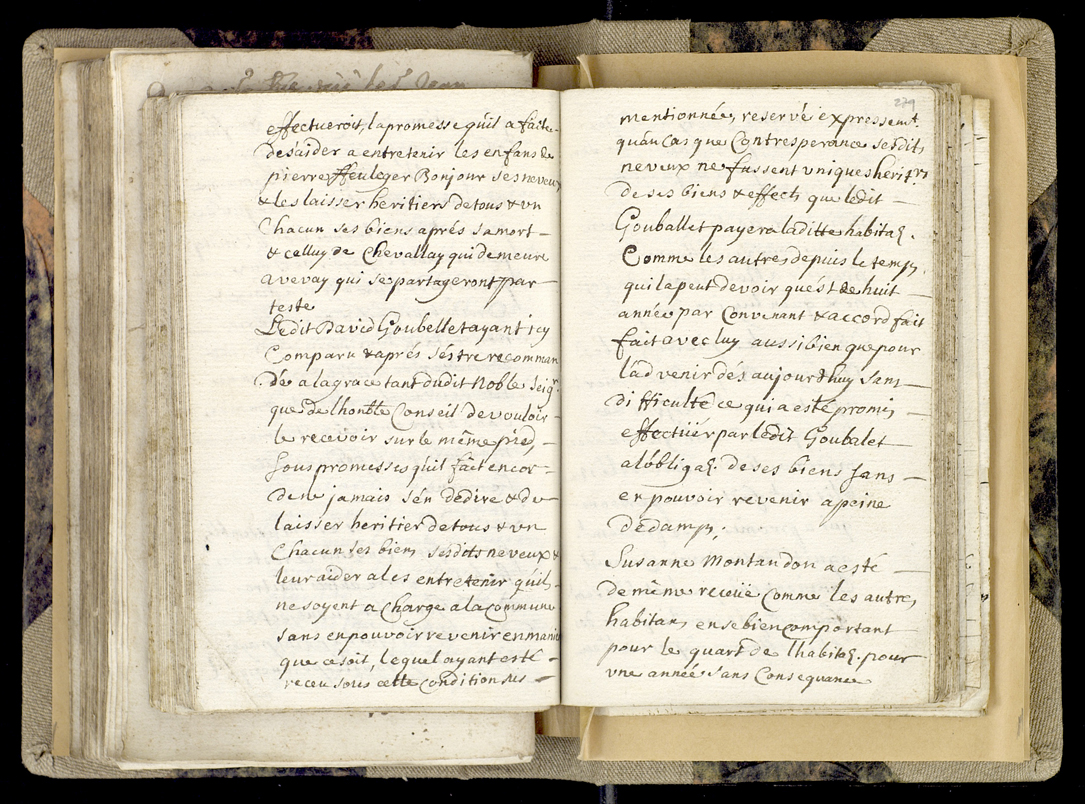 effectueroit, la promesse qu'il a faite
des'aider a entretenir les enfans de
pierre ffeu leger Bonjour ses neveux
& les laisser heritiers de tous & vn
Chacun ses biens aprés sa mort
& celluy de Chevallay qui demeure
a vevay qui se partageront par
teste
Ledit David Goubellet ayant icy
Comparu & aprés s'éstre recomman
dé a la grace tant dudit Noble Seigr.
que de lhonble Conseil de vouloir
le recevoir sur le même pied,
sous promesses qu'il fait encor
de ne jamais s'én dédire & de
laisser heritier de tous & vn
Chacun ses biens sesdits neveux &
leur aider a les entretenir qu'ils
ne soyent a Charge a la Commune
sans en pouvoir revenir en manie
que ce soit, lequel ayant esté
receu sous cette Condition sus
279
mentionnée, reservé expressemt.
qu'au Cas que Contresperance sesdits
neveux ne fussent vniques heritrs
de ses biens & effects que ledit
Gouballet payera laditte habitaõ.
Comme les autres depuis le temps
qu'il a peut devoir qu'ést de huit
année par Convenant & accord fait
fait avec luy aussi bien que pour
l'ad venir dés aujourdhuy sans
difficulté ce qui a esté promis
effectüer par ledit Goubalet
a l'óbligaõ. de ses biens sans
en pouvoir revenir a peine
de damps;
Susanne Montandon a esté
de même reçüe Comme les autres
habitans en se bien Comportant
pour le quart de l'habitaõ. pour
vne année sans Consequance